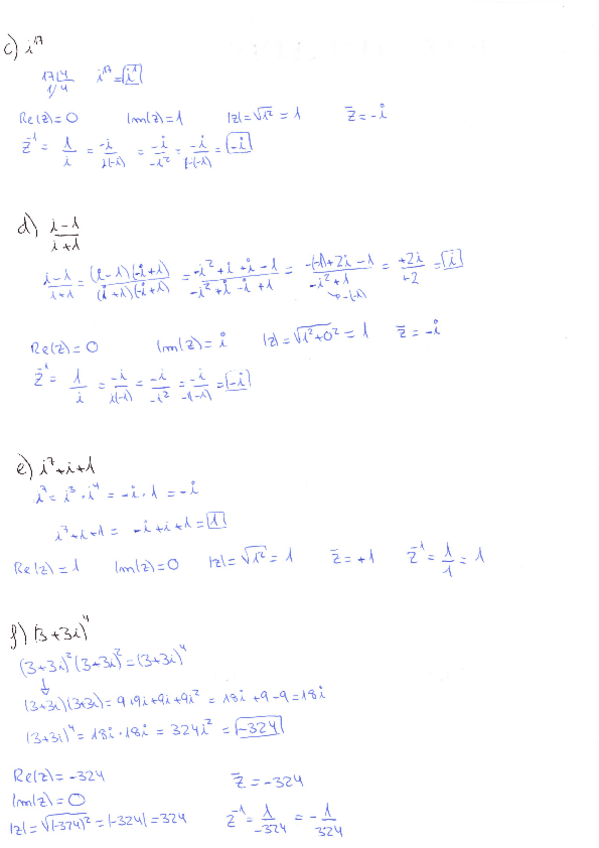 c) i^17
17 | 4
1/ 4    i^17 = i^1
Re(z) = 0    Im(z) = 1    |z| = √1² = 1    z̄ = -i
z^-1 = 1/i = -i/i(-i) = -i/-i² = -i/-(-1) = -i
d) (i-1)/(i+1)
(i-1)/(i+1) = (i-1)(-i+1)/(i+1)(-i+1) = (-i²+i+i-1)/(-i²+i-i+1) = (-(-1)+2i-1)/(-i²+1) = +2i/+2 = i
-(-1)
Re(z) = 0    Im(z) = i    |z| = √1²+0² = 1    z̄ = -i
z^-1 = 1/i = -i/i(-i) = -i/-i² = -i/-(-1) = -i
e) i^7+i+1
i^7 = i^3 · i^4 = -i · 1 = -i
i^7+i+1 = -i+i+1 = 1
Re(z) = 1    Im(z) = 0    |z| = √1² = 1    z̄ = +1    z^-1 = 1/1 = 1
f) (3+3i)^4
(3+3i)²(3+3i)² = (3+3i)^4
↓
(3+3i)(3+3i) = 9+9i+9i+9i² = 18i+9-9 = 18i
(3+3i)^4 = 18i · 18i = 324i² = -324
Re(z) = -324    z̄ = -324
Im(z) = 0
|z| = √(-324)² = |-324| = 324    z^-1 = 1/-324 = -1/324